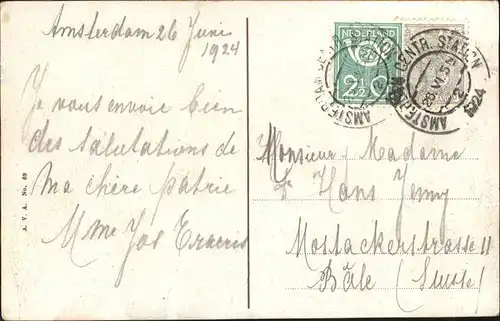 Amsterdam 26 Juni
1924
Je vous envoie bien
des salutations de
ma chère patrie
Mme Jos
A. V. A. No. 69
NEDERLAND
2½ C
AMSTERDAM CENTR. STATION
1924
Monsieur, Madame
Hans Jenny
Mostackerstrasse 11
Bâle (Suisse)